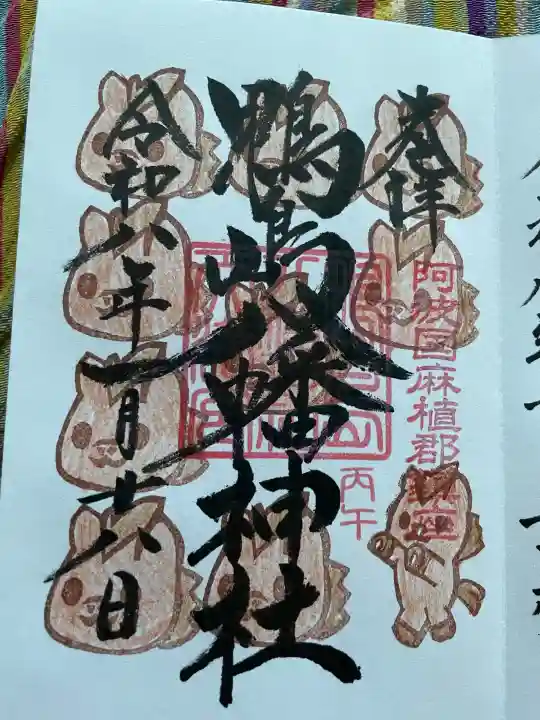 奉拝
阿波国麻植郡鎮座
丙午
鴨島八幡神社
令和八年一月十六日